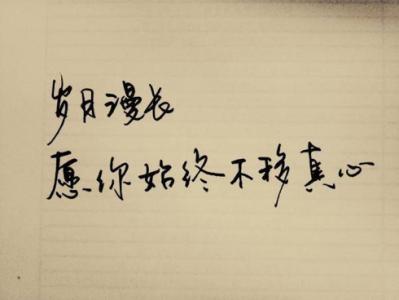 岁月漫长
愿你始终不移真心